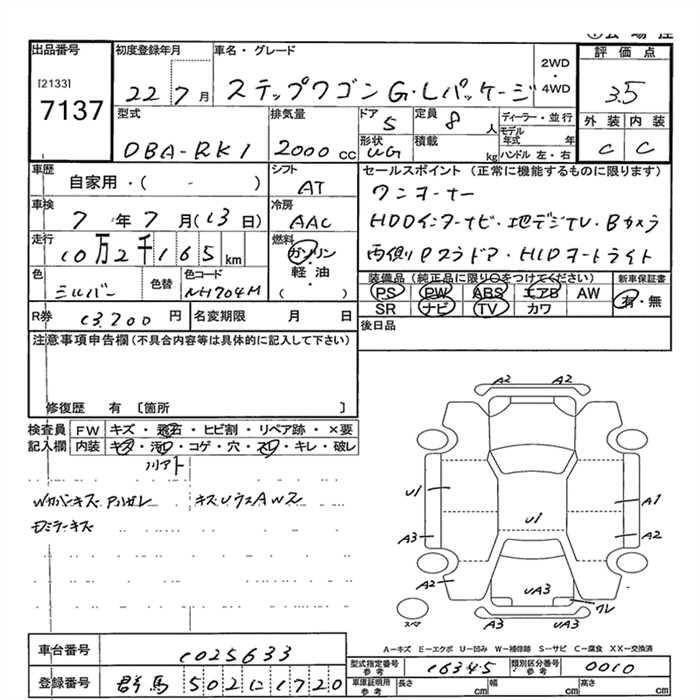 出品番号
[2133]
7137
初度登録年月
22 7月
車名・グレード
ステップワゴン G・Lパッケージ
2WD
・
4WD
評価点
3.5
外装 内装
C C
型式
DBA-RK1
排気量
2000 CC
ドア 5
形状 WG
定員 8 人
積載 kg
ディーラー・並行
モデル年式 年
ハンドル 左・右
車歴
自家用・( - )
シフト
AT
車検
7年7月(13日)
冷房
AAC
走行
10万2千165km
燃料
ガソリン
・
軽・油
・
( )
色
シルバー
色替
色コード
NH704M
R券 13,200 円
名変期限 月 日
セールスポイント(正常に機能するものに限ります)
ワンオーナー
HDDインターナビ・地デジTV・Bカメラ
両側Pスラドア・HIDオートライト
装備品(純正品に限り○をつけてください)
新車保証書
PS PW ABS エアB AW
SR ナビ TV カワ
有・無
後日品
注意事項申告欄(不具合内容等は具体的に記入して下さい)
修復歴 有 〔箇所 〕
検査員記入欄
FW キズ・飛石・ヒビ割・リペア跡・×要
内装 キズ・汚れ・コゲ・穴・スレ・キレ・破レ
A2 A2
U1
U1
A1
A3
A2
A2
UA3
ワレ
A2 UA3
スペア
A－キズ E－エクボ U－凹み W－補修跡 S－サビ C－腐食 XX－交換済
車台番号
1025633
登録番号
群馬 502 に 1720
型式指定番号
参考
16345
類別区分番号
参考
0010
車庫証明用
参考
長さ cm
幅 cm
高さ cm